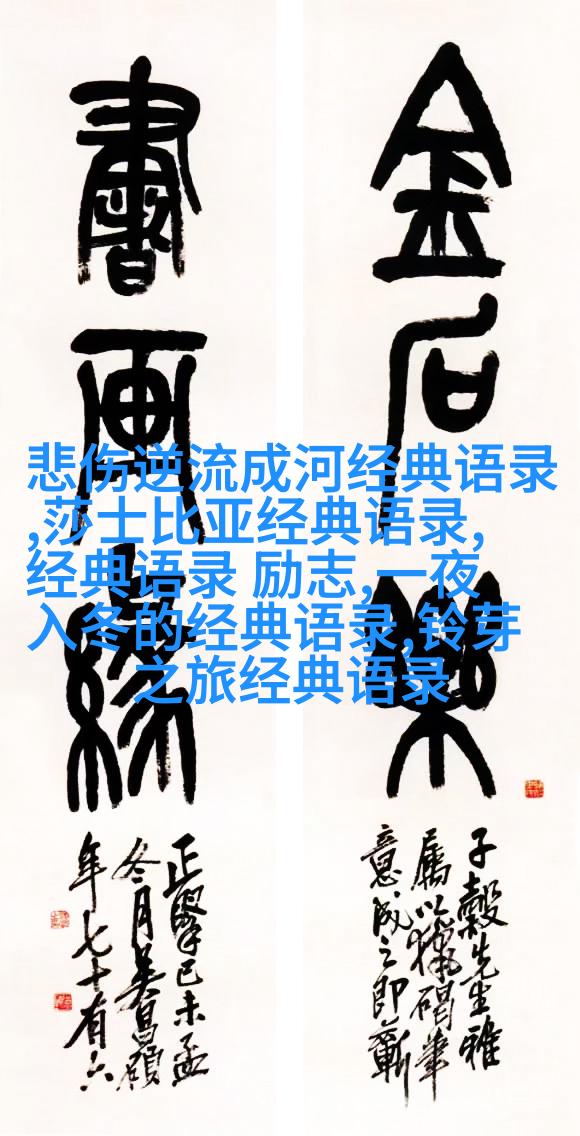 金石樂
子穀先生雅
屬以獵碣筆
意成之即蘄
書画緣
正己未孟
冬月吴昌碩
年七十有六
悲伤逆流成河经典语录
,莎士比亚经典语录,
经典语录 励志,一夜
入冬的经典语录,铃芽
之旅经典语录